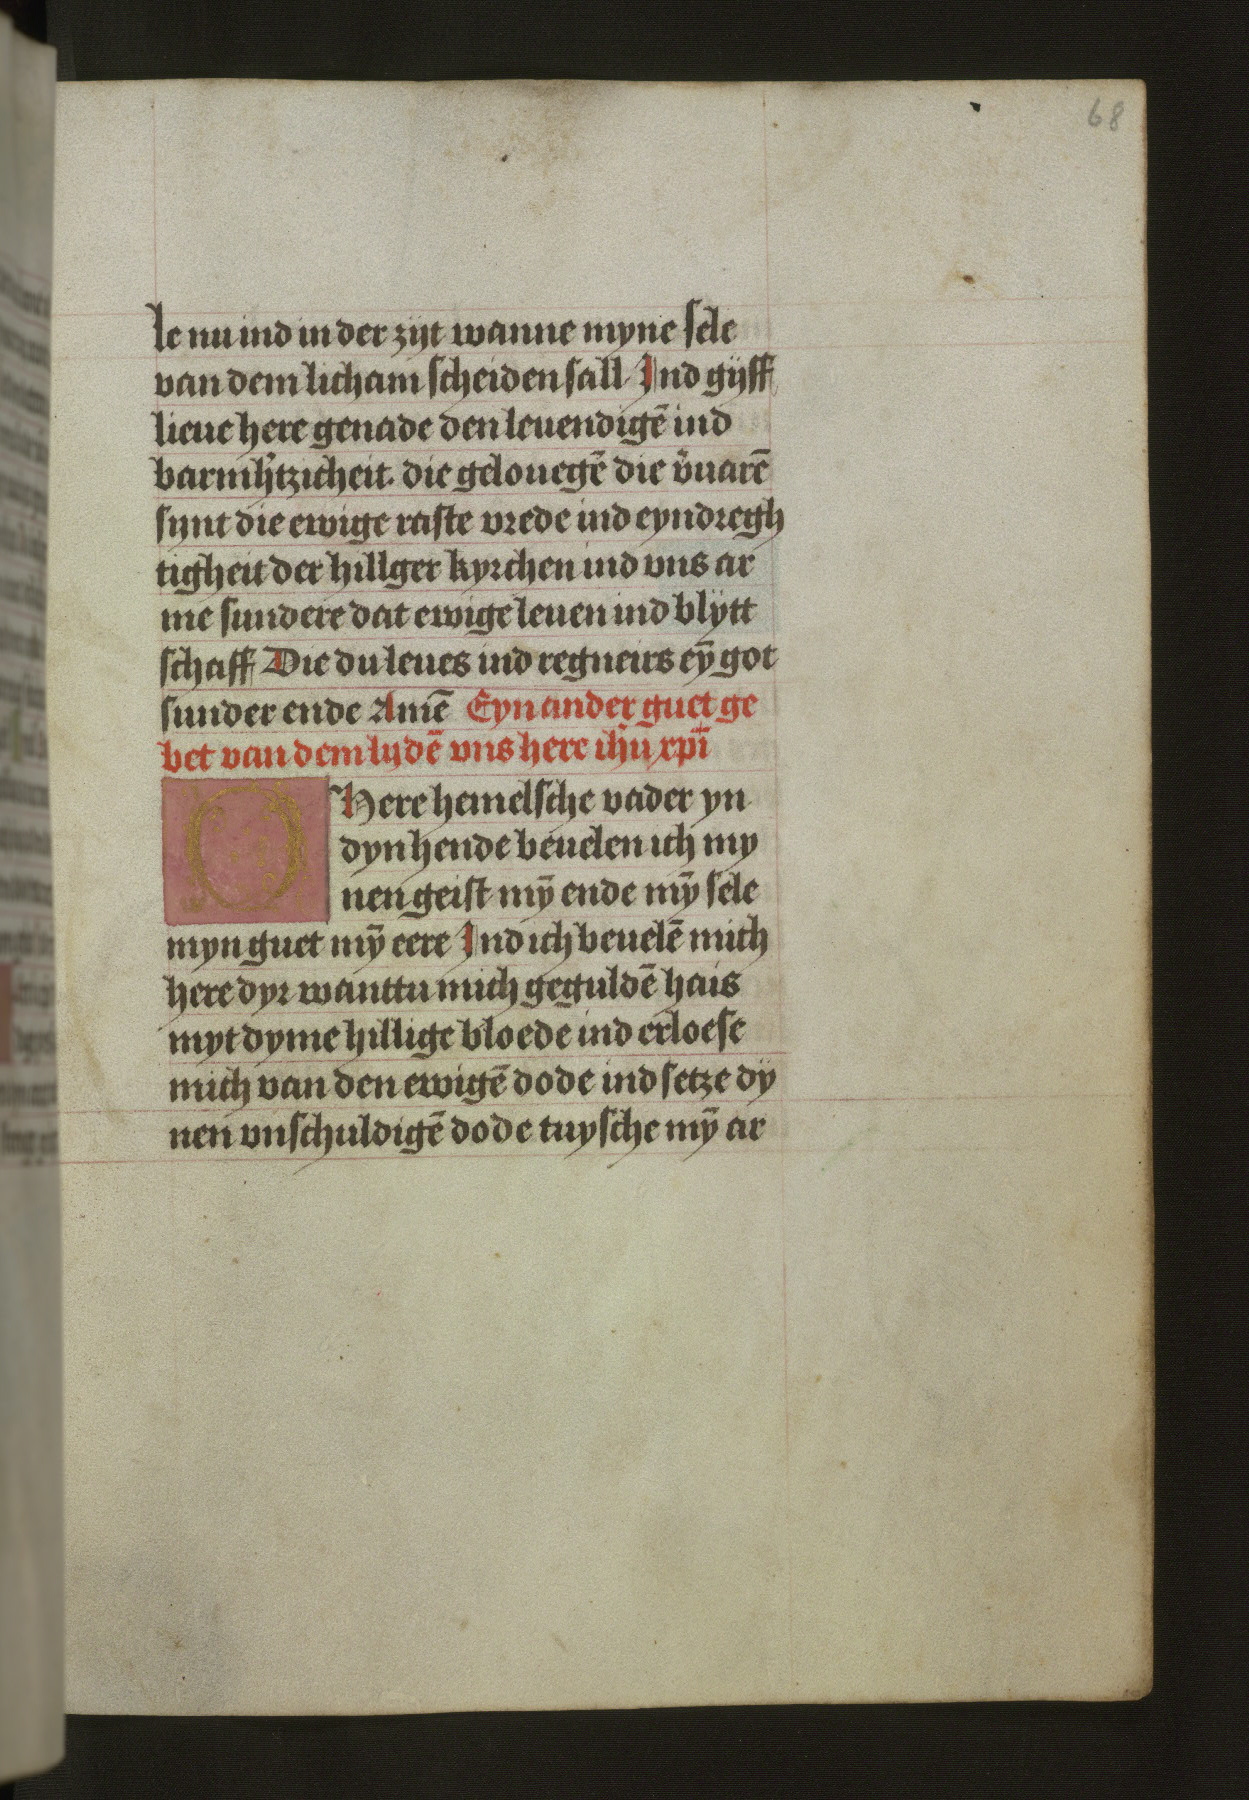 68
le nu ind in der zijt wanne myne sele
van dem licham scheiden sall Ind gijff
lieue here genade den leuendigē ind
barmh̓tzicheit. die gelouegē die v̓uarē
synt die ewige raste vrede ind eyndregh
tigheit der hillger kyrchen ind vns ar
me sundere dat ewige leuen ind blijtt
schaff Die du leues ind regneirs eȳ got
sunder ende Amē Eyn ander guet ge
bet van dem lydē vns here ihū xpī
O Here hemelsche vader yn
dyn hende beuelen ich my
nen geist mȳ ende mȳ sele
myn guet mȳ eere Ind ich beuelē mich
here dyr wanttu mich geguldē hais
myt dyme hillige bloede ind erloese
mich van den ewigē dode ind setze dÿ
nen vnschuldigē dode tuysche mȳ ar